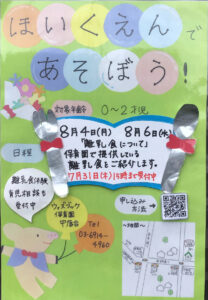 ほいくえんで
あそぼう!
対象年齢 0〜2才児
日程
8月4日(月) 8月6日(水)
「離乳食について」
保育園で提供している
離乳食をご紹介します。
7月31日(木)15時まで受付中
離乳食体験
育児相談も
受付中
保育園
Tel
03-6914-
4960
申し込み
方法
〜地図〜